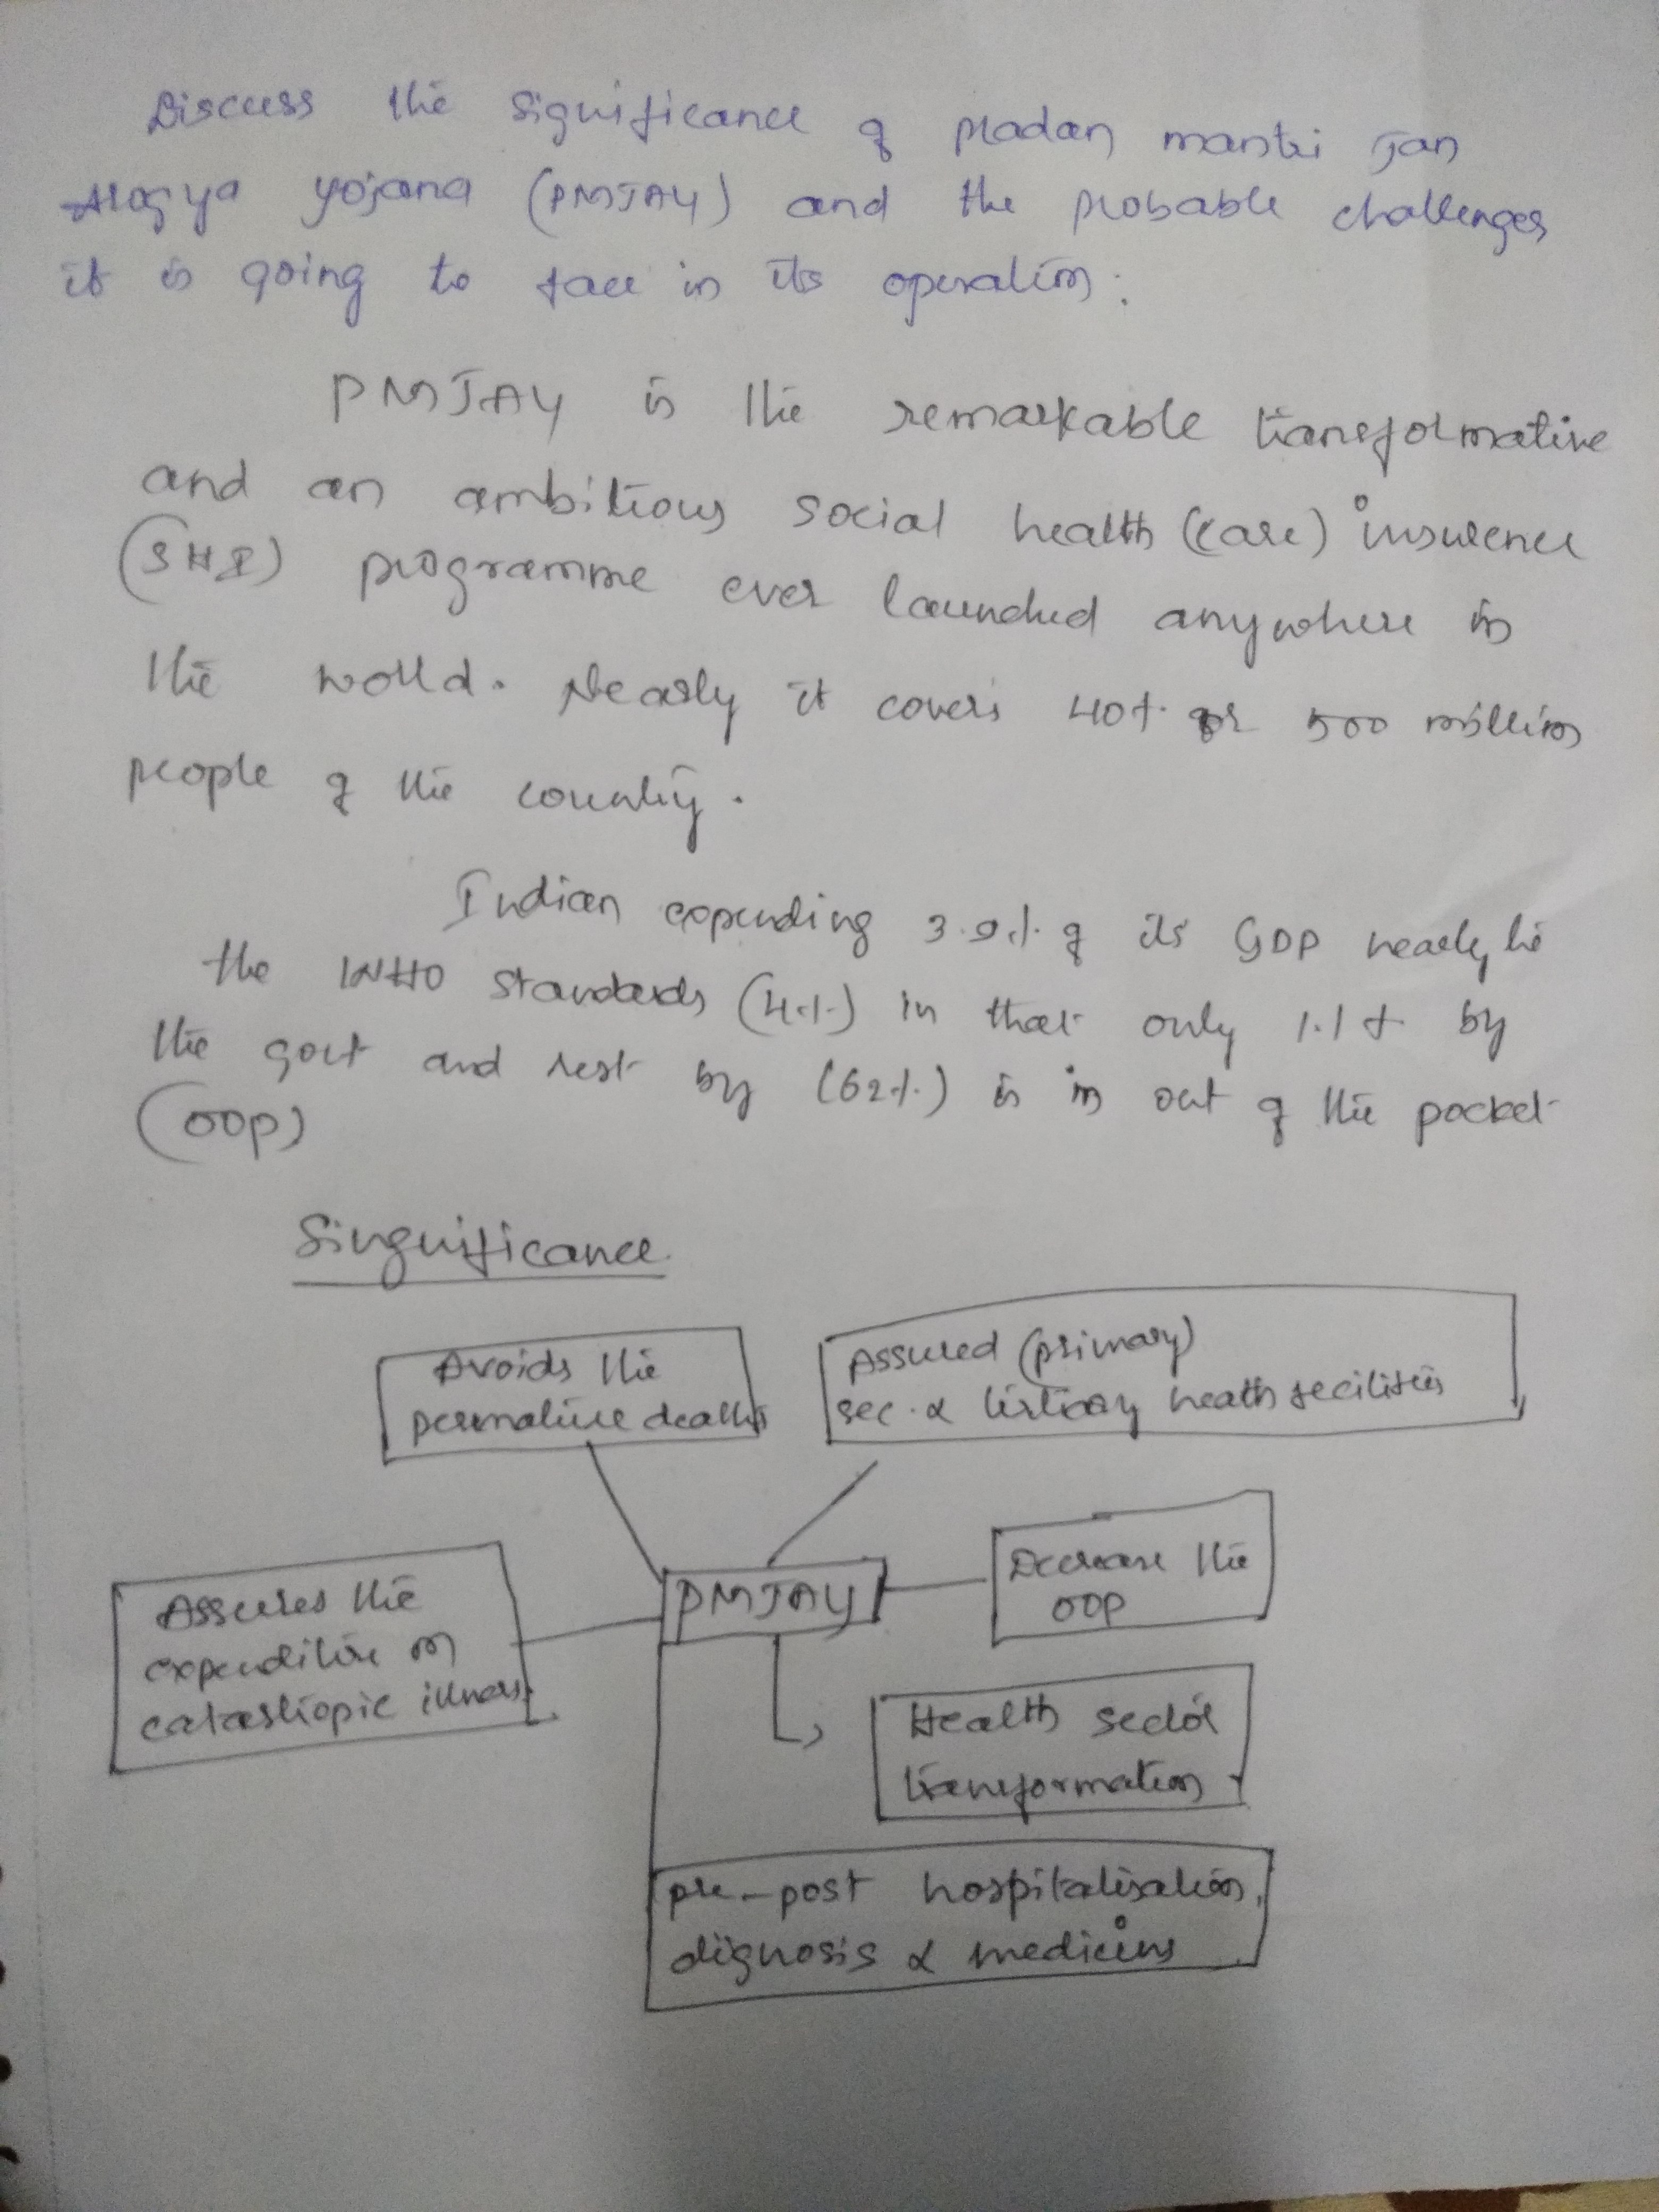 Discuss the significance of pradan mantri Jan
Arogya yojana (PMJAY) and the probable challenges
it is going to face in its operation.
PMJAY is the remarkable transformative
and an ambitious social health (care) insurence
(SHI) programme ever launched anywhere in
the world. Nearly it covers 40% or 500 million
people of the country.
Indian expending 3.9% of its GDP nearly to
the WHO standards (4%) in that only 1.1% by
the govt and rest by (62%) is in out of the pocket
(OOP)
Singnificance
Avoids the
permature deaths
Assured (primary)
sec. & tirtiary heath fecilities
Assures the
expenditure on
catastropic illness
PMJAY
Decrease the
OOP
Health sector
transformation
pre-post hospitalisation,
dignosis & medicins